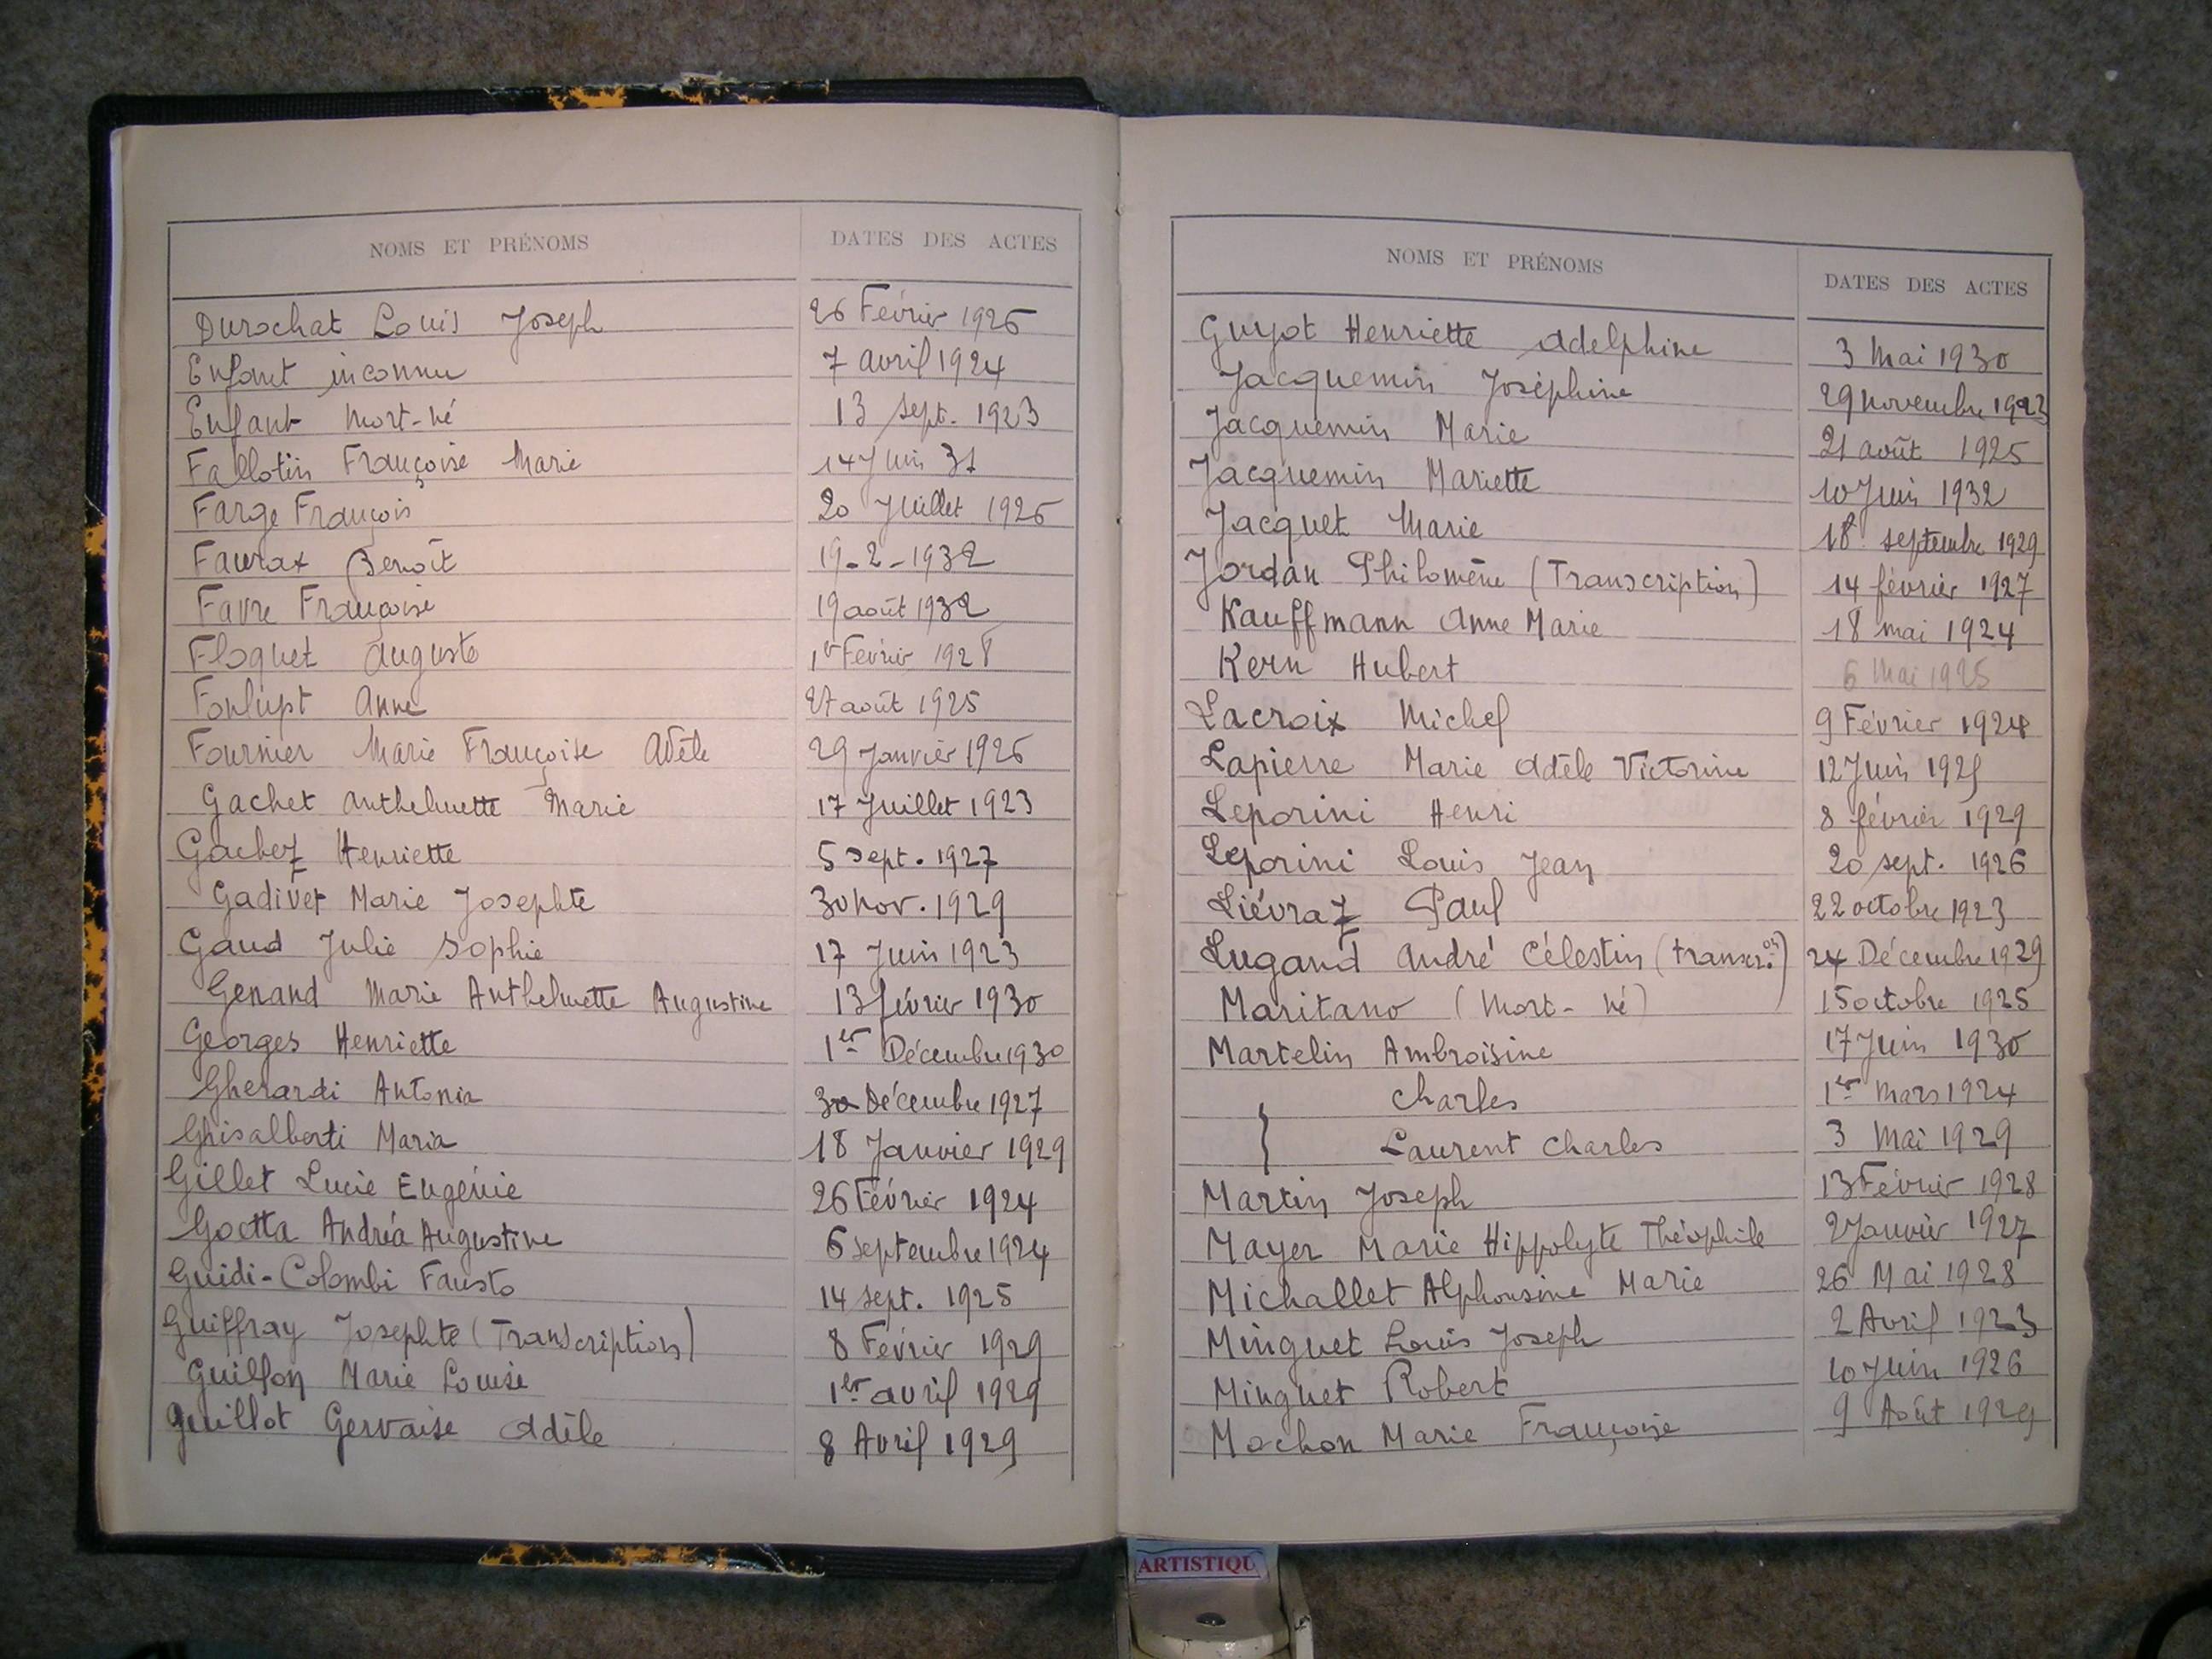 NOMS ET PRÉNOMS DATES DES ACTES
Durochat Louis Joseph 26 Février 1926
Enfant inconnu 7 avril 1924
Enfant Mort-né 13 sept. 1923
Fallotin Françoise Marie 14 Juin 31
Farge François 20 Juillet 1926
Faurax Benoît 19-2-1932
Favre Françoise 19 août 1932
Floquet Auguste 1er Février 1928
Fonlupt Anne 27 août 1925
Fournier Marie Françoise Adèle 29 Janvier 1926
Gachet Anthelmette Marie 17 Juillet 1923
Gachet Henriette 5 sept. 1927
Gadivet Marie Josephte 30 nov. 1929
Gaud Julie Sophie 17 Juin 1923
Genand Marie Anthelmette Augustine 13 février 1930
Georges Henriette 1er Décembre 1930
Gherardi Antonia 30 Décembre 1927
Ghisalberti Maria 18 Janvier 1929
Gillet Lucie Eugénie 26 Février 1924
Goetta Andréa Augustine 6 septembre 1924
Guidi-Colombi Fausto 14 sept. 1925
Guiffray Josephte (Transcription) 8 Février 1929
Guillon Marie Louise 1er avril 1929
Guillot Gervaise Adèle 8 Avril 1929
NOMS ET PRÉNOMS DATES DES ACTES
Guyot Henriette Adelphine 3 Mai 1930
Jacquemin Joséphine 29 novembre 1923
Jacquemin Marie 21 août 1925
Jacquemin Mariette 10 Juin 1932
Jacquet Marie 18 septembre 1929
Jordan Philomène (Transcription) 14 février 1927
Kauffmann Anne Marie 18 mai 1924
Kern Hubert 6 Mai 1925
Lacroix Michel 9 Février 1924
Lapierre Marie Adèle Victorine 12 Juin 1925
Leporini Henri 8 février 1929
Leporini Louis Jean 20 sept. 1926
Liévraz Paul 22 octobre 1923
Lugand André Célestin (transcron) 24 Décembre 1929
Maritano (Mort-né) 15 octobre 1925
Martelin Ambroisine 17 Juin 1930
} Charles 1er Mars 1924
Laurent Charles 3 Mai 1929
Martin Joseph 13 Février 1928
Mayer Marie Hippolyte Théophile 2 Janvier 1927
Michallet Alphonsine Marie 26 Mai 1928
Minguet Louis Joseph 2 Avril 1923
Minguet Robert 10 Juin 1926
Mochon Marie Françoise 9 Août 1929
ARTISTIQU